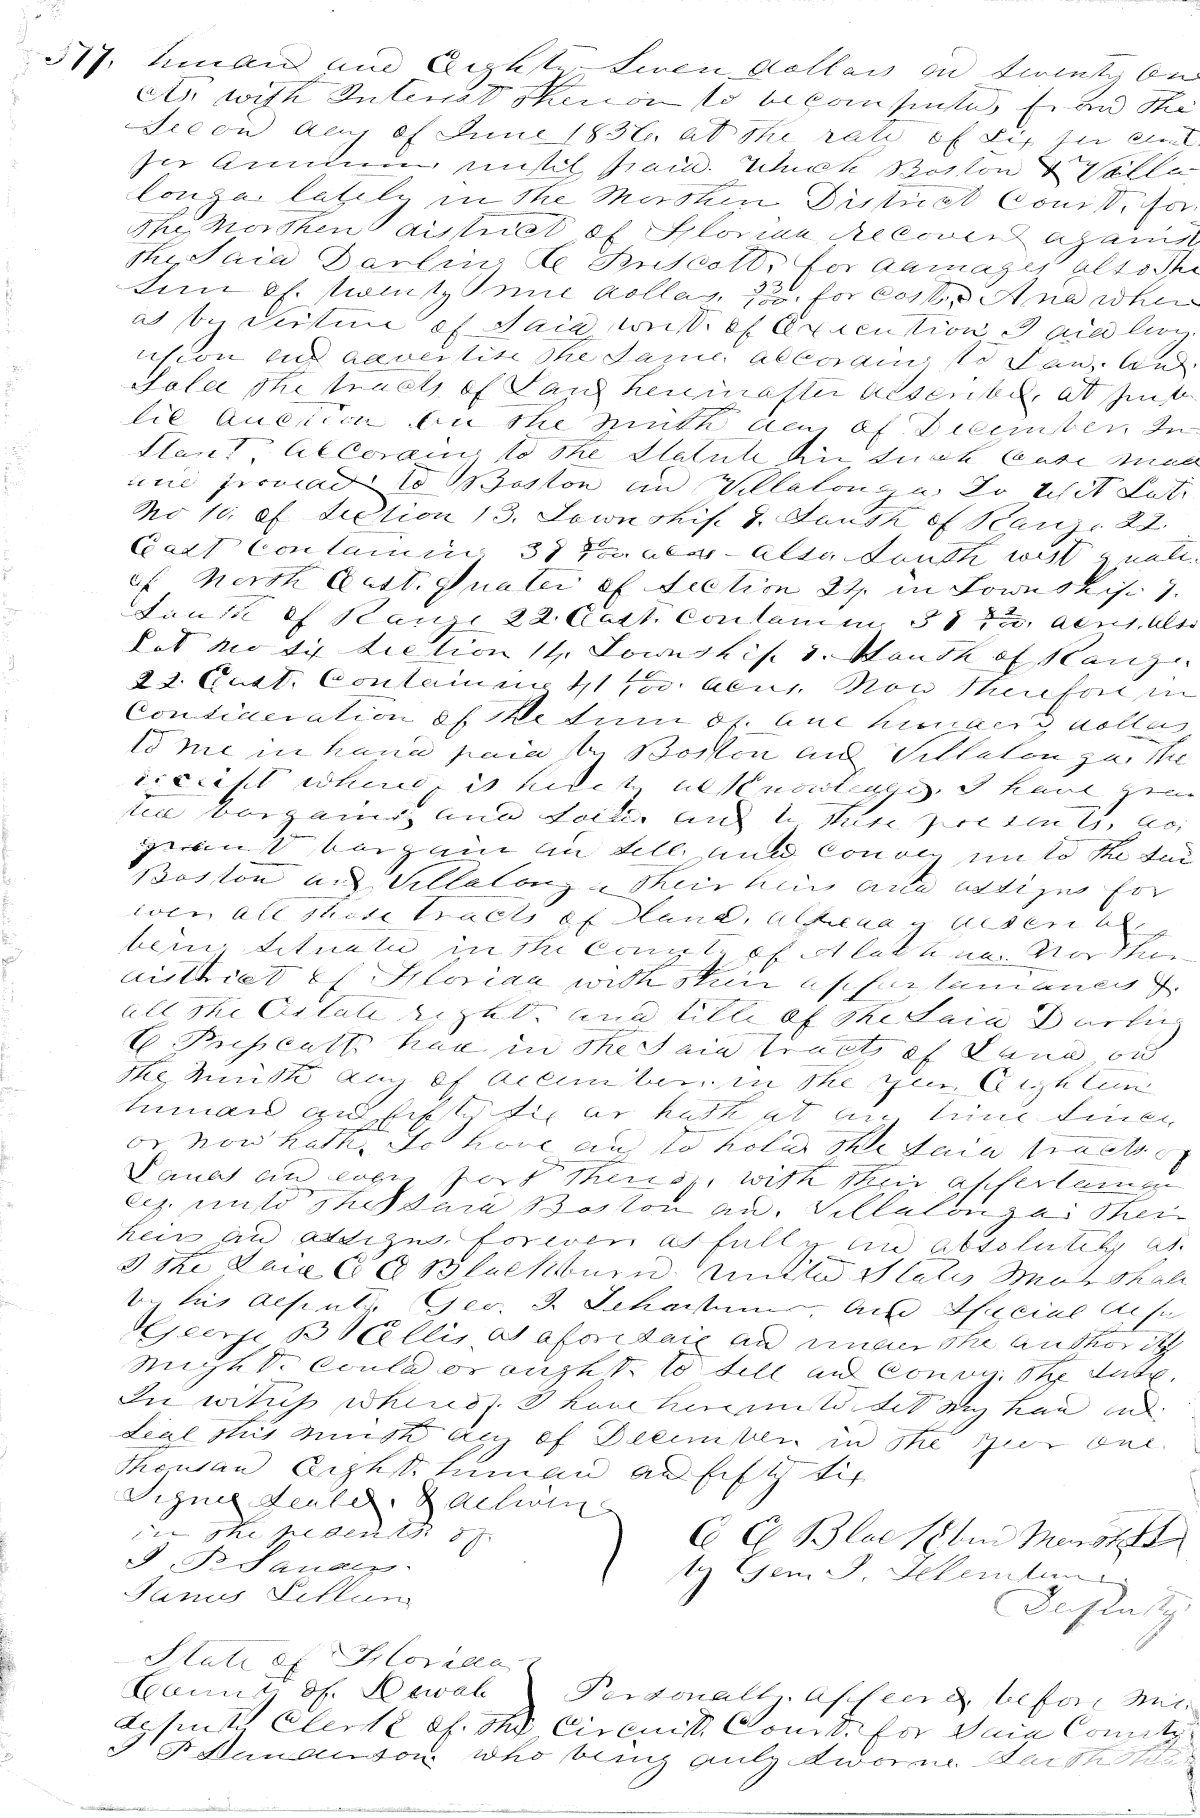 577. hundred and Eighty Seven dollars and twenty One
cts. with Interest thereon to be computed from the
Second day of June 1856. at the rate of Six per cent.
per Annum, until paid. Which Boston & Villa
longa. lately in the Northen District Court, for
the Northen district of Florida recovered against
the Said Darling C Prescott, for damages also the
Sum of. twenty nine dollars. 33/100. for costs. And where
as by virtue of Said writ. of Execution, I did levy
upon and advertise the Same according to Law. And
Sold the tracts of Land hereinafter described, at pub
lic Auction on the ninth day of December. In
Stant. According to the Statute in Such Case made
and provided to Boston and Villalonga. To Wit Lot
No 10. of Section 13. Township 8. South of Range 22.
East Containing 38 acres - also South west quater
of North East. quater of Section 24. in Township
South of Range 22. East. Containing 38 acres. also
Lot No Six Section 14. Township 8. South of Range.
22. East. Containing 41 acres. Now Therefore in
Consideration of the Sum of. one hundred dollars
to me in hand paid by Boston and Villalonga. the
receipt whereof is hereby acknowledged. I have gran
ted bargained and Sold. and by these presents. do.
grant bargain and Sell. and convey unto the Said
Boston and Villalonga their heirs and assigns for
ever. all those tracts of land. already described
being Situated in the County of Alachua Northen
district of Florida with their appertainances &.
all the Estate right. and title of the Said Darling
C Prescott. had in the Said tracts of Land on
the ninth day of december. in the year Eighteen
hundred and fifty Six or hath at any time Since,
or now hath. To have and to hold the Said tracts of
Lands and every part thereof. with their appertainan
ces. unto the Said Boston and. Villalonga. their
heirs and assigns. forever. as fully and absolutely as.
I the Said E E Blackburn. United States Marshall
by his deputy Geo. and Special depu
George B Ellis. as aforesaid and under the authority
might. could or ought. to Sell and Convey. the Same.
In witness whereof. I have hereunto Set my hand and
Seal this ninth day of December. in the year one.
thousand Eight. hundred and fifty Six
Signed Sealed. & delivered
in the presents of
J. P. Sanderson.
James
E E Blackburn Marshall
by
Deputy
State of Florida
County of. Duval Personally. Appeared. before me.
deputy Clerk of. the Circuit. Court. for Said County
J P Sanderson. who being duly Sworne. Saith that